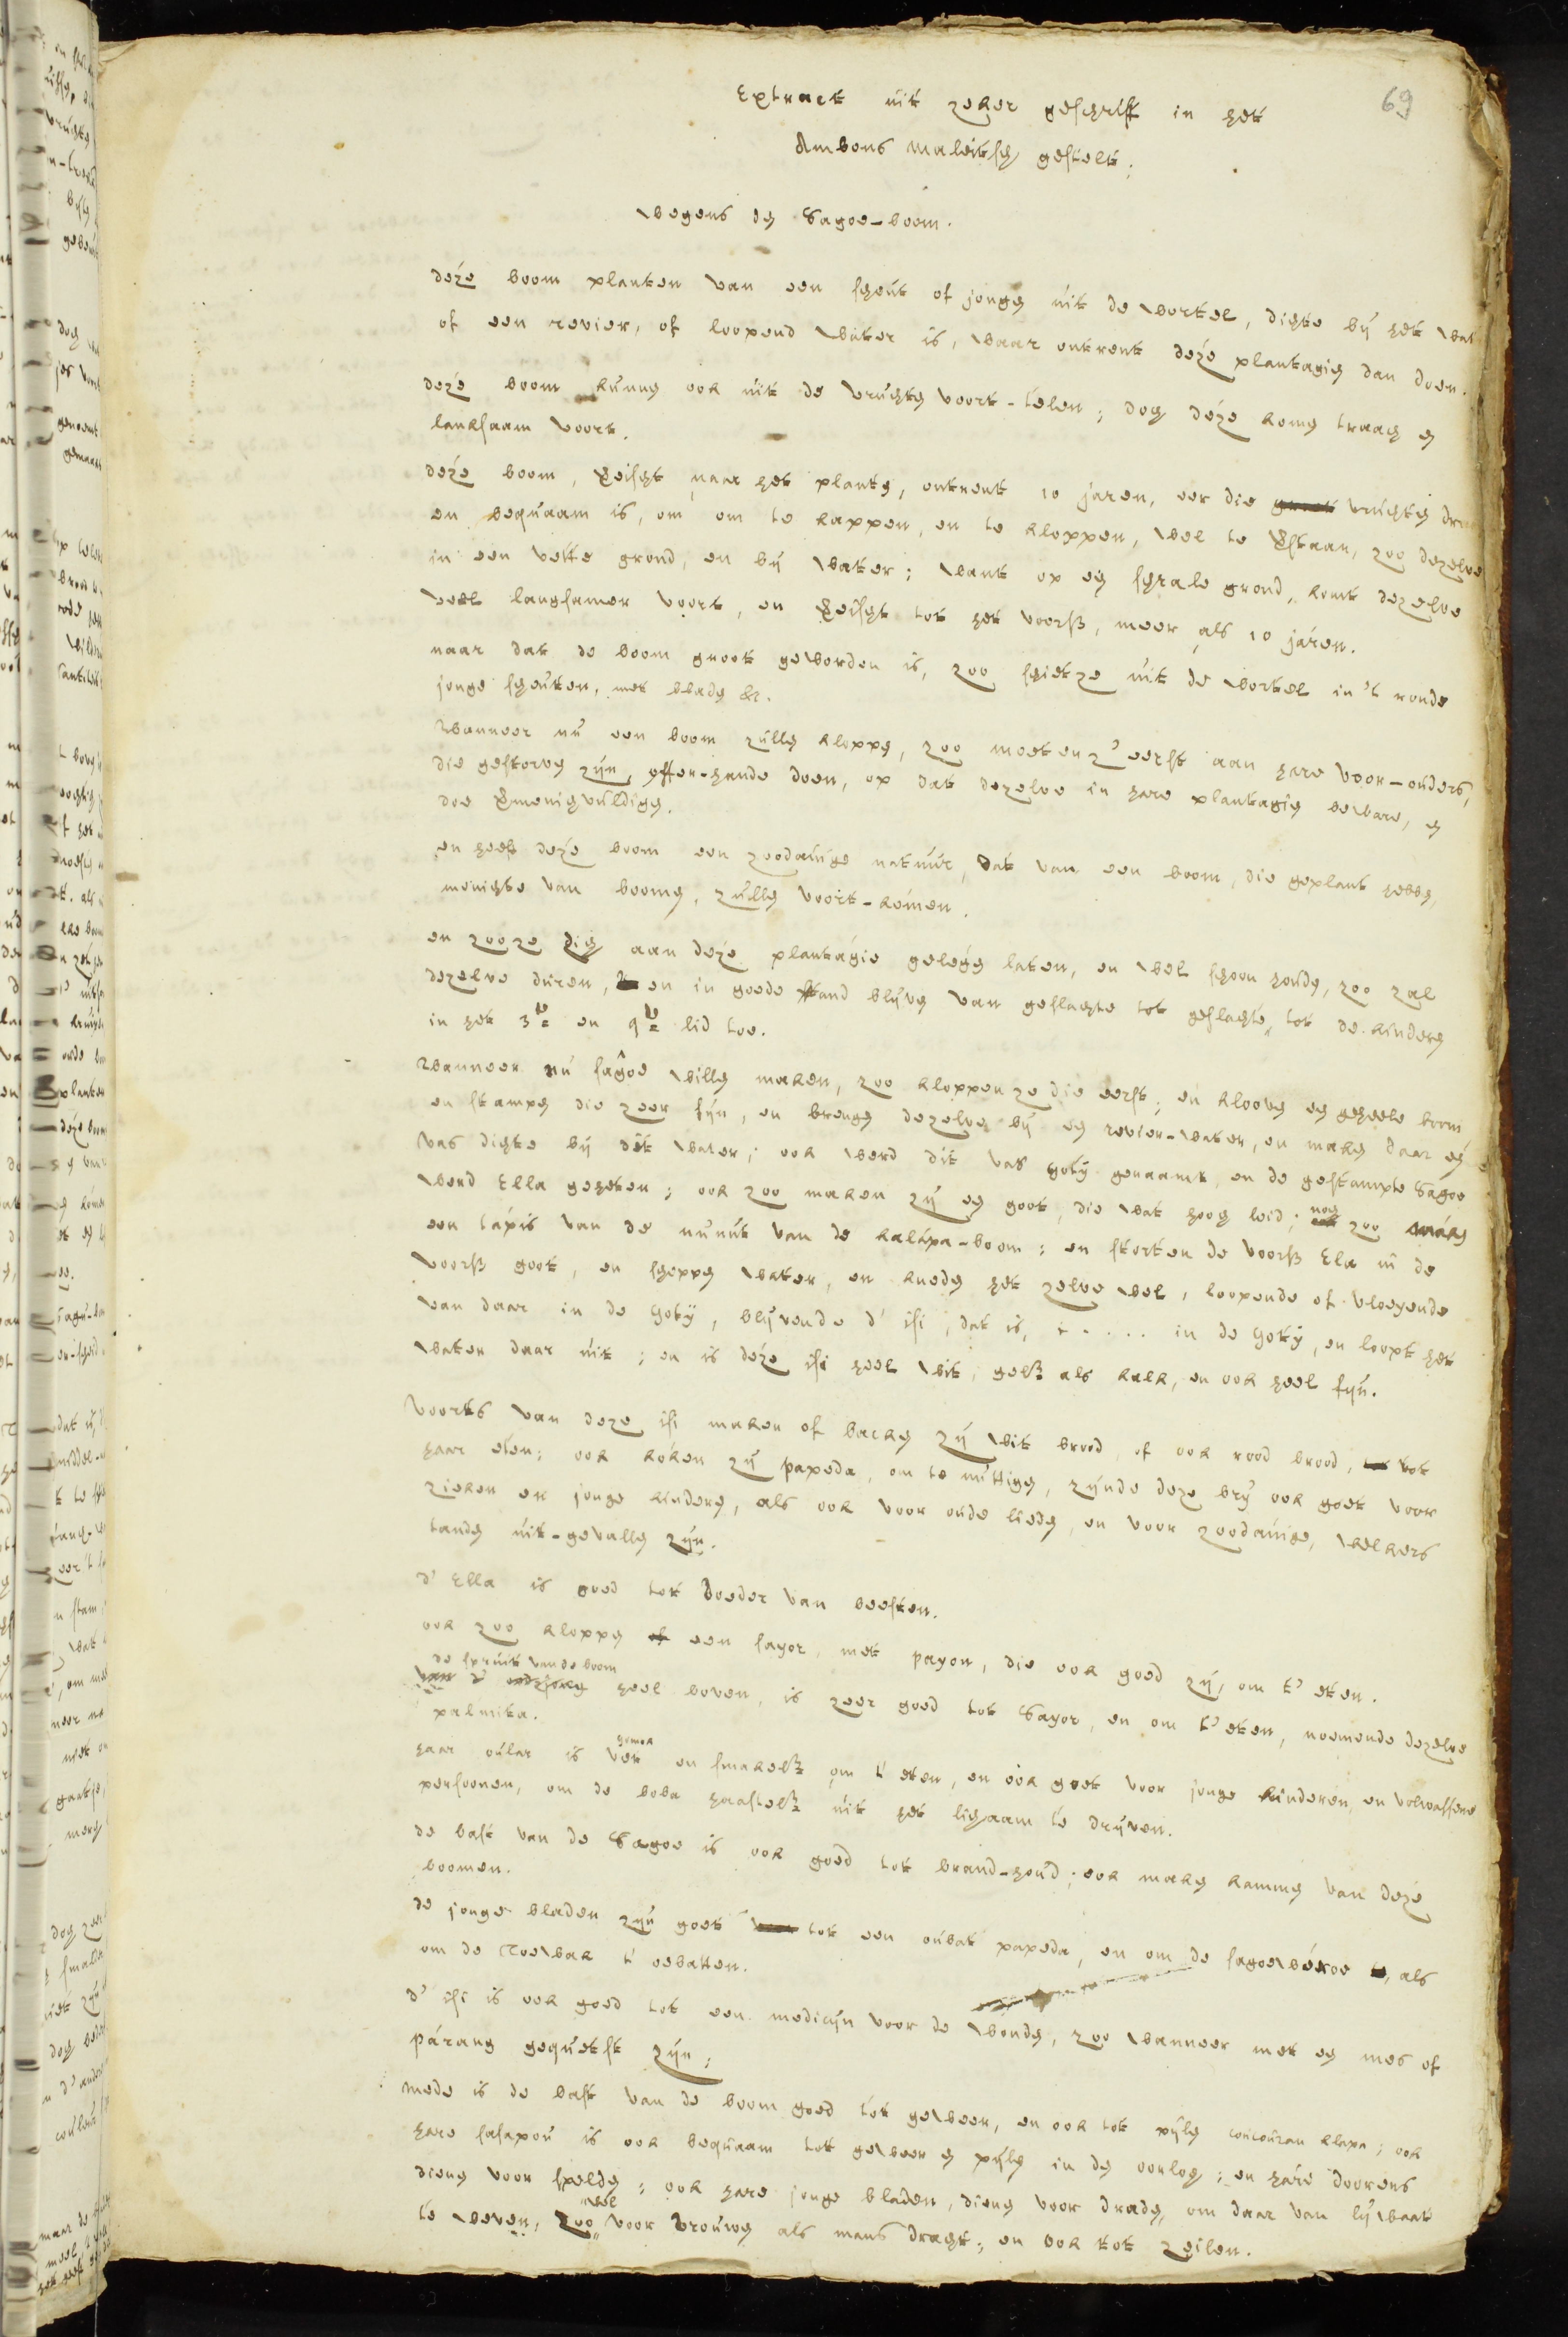 69
Extract uit zeker geschrift in het
Ambons maleitsch gestelt;
wegens den Sagoe-boom.
deze boom planten van een scheut of jonge uit de wortel, dichte bij het wat
of een revier, of loopend water is, waar ontrent deze plantagien dan doen.
deze boom kunnen ook uit de vruchten voort-telen; doch deze komen traach en
lanksaam voort.
deze boom, vereischt naar het planten, ontrent 10 jaren, eer die groot vruchten dra
en bequaam is, om om te kappen, en te kloppen, wel te verstaan, zoo dezelve
in een vette grond, en bij water; want op een schrale grond, komt dezelve
veel langsamer voort, en vereischt tot het voorsz, meer als 10 jaren.
naar dat de boom groot geworden is, zoo schietze uit de wortel in 't ronde
jonge scheuten, met bladen &c.
Wanneer nu een boom zullen kloppen, zoo moeten z' eerst aan hare voor-ouders,
die gestorven zijn, offer-hande doen, op dat dezelve in hare plantagien beware, en
doe vermenichvuldigen.
en heeft deze boom een zoodanige natuur, dat van een boom, die geplant hebben,
menichte van boomen, zullen voort-komen.
en zooze zich aan deze plantagie gelegen laten, en wel schoon houden, zoo zal
dezelve duren, en in goede stand blijven van geslachte tot geslachte, tot de kinderen
in het 3de en 4de lid toe.
Wanneer nu sagoe willen maken, zoo kloppenze die eerst; en klooven een geheele boom
en stampen die zeer fijn, en brengen dezelve bij een revier-water, en maken daar een
vas dichte bij dit water; ook werd dit vas goti genaamt, en de gestampte Sagoe
werd Ella geheten; ook zoo maken zij een goot, die wat hooch leid; noch zoo maken
een tapis van de nunut van de kalapa-boom; en storten de voorsz Ela in de
voorsz goot, en scheppen water, en kneden het zelve wel, loopende of vloeyende
van daar in de Gotij, blijvende d' isi, dat is, t..... in de Gotij, en loopt het
water daar uit; en is deze isi heel wit, gelijk als kalk, en ook heel fijn.
Voorts van deze isi maken of backen zij wit brood, of ook rood brood, tot
haar eten; ook koken zij papeda, om te nuttigen, zijnde deze brij ook goet voor
zieken en jonge kinderen, als ook voor oude lieden, en voor zoodanige, welkers
tanden uit-gevallen zijn.
d' Ella is goed tot voeder van beesten.
ook zoo kloppen een sayor, met payon, die ook goed zij, om t' eten.
de spruit van de boom
heel boven, is zeer goed tot Sayor, en om t' eten, noemende dezelve
palmita.
gemok
haar oular is vet en smakelijk om t' eten, en ook goet voor jonge kinderen, en volwassene
persoonen, om de boba haastelijk uit het lichaam te drijven.
de bast van de Sagoe is ook goed tot brand-houd; ook maken kamming van deze
boomen.
de jonge bladen zijn goet tot een oubat papeda, en om de sagoe, als
om de Toewak t' bebatten.
d' isi is ook goed tot een medicijn voor de wonden, zoo wanneer met een mes of
parang gequetst zijn;
mede is de bast van de boom goed tot geweer, en ook tot pijlen klapa; ook
hare sasapou is ook bequaam tot geweer en pijlen in den oorloch; en hare doorens
dienen voor spelden; ook hare jonge bladen, dienen voor draden, om daar van lijwaat
te weven, zoo wel voor vrouwen als mans dracht, en ook tot zeilen.